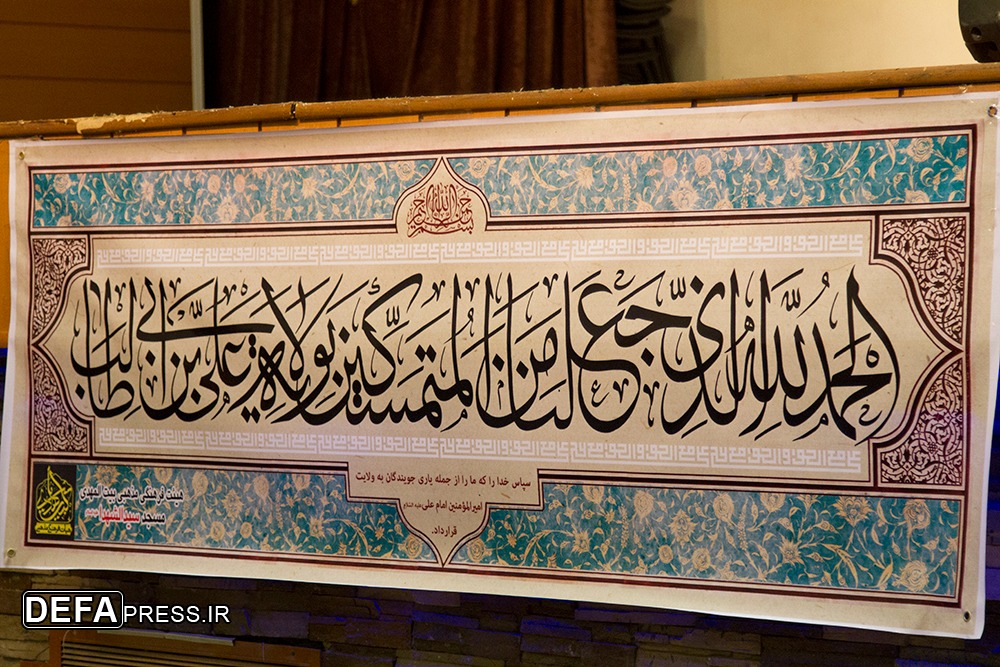 بسم الله الرحمن الرحیم
الحمد لله الذی جعلنا من المتمسکین بولایة علی بن ابی طالب
سپاس خدا را که ما را از جمله یاری جویندگان به ولایت
امیرالمؤمنین امام علی علیه السلام
قرارداد.
هیئت فرهنگی مذهبی بیت المهدی
مسجد سیدالشهدا
DEFAPRESS.IR